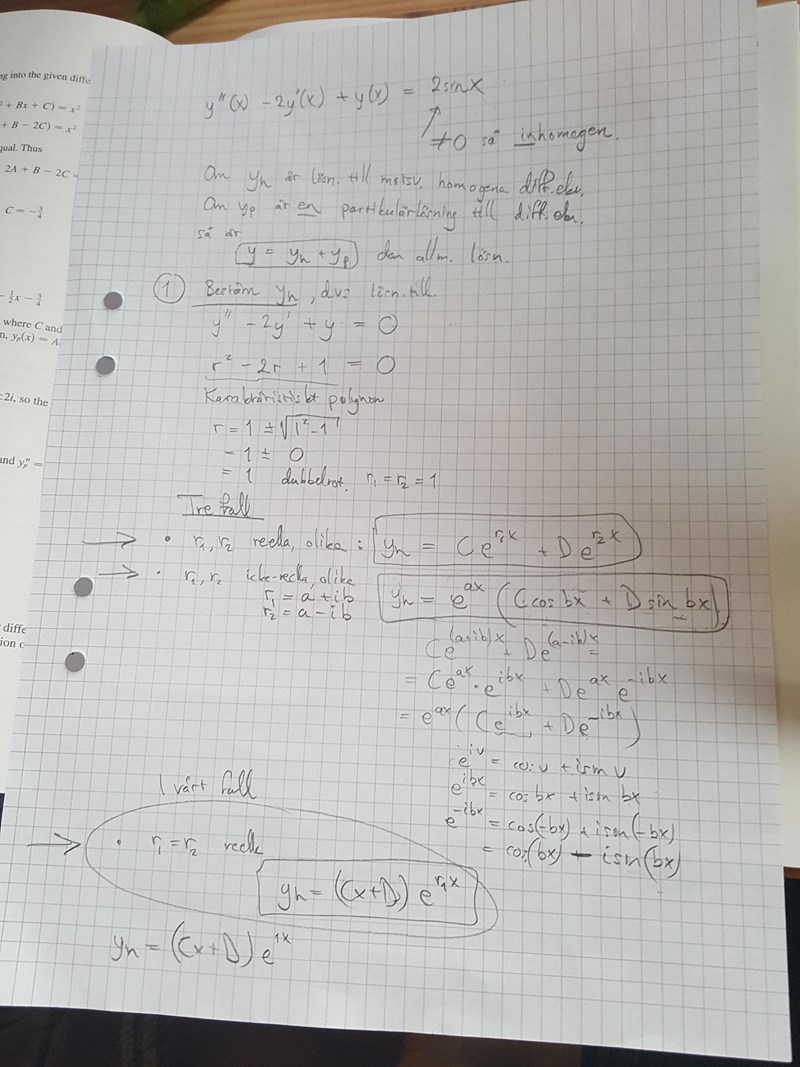 ng into the given diffe
² + Bx + C) = x²
+ B − 2C) = x²
qual. Thus
2A + B − 2C =
C = −3/4
− ½x − ¾
where C and
n, yp(x) = A
2i, so the
and yp'' =
diffe
ion c
y''(x) − 2y'(x) + y(x) = 2sinx
≠0 så inhomogen.
Om yh är lösn. till motsv. homogena diff.ekv.
Om yp är en partikulärlösning till diff.ekv.
så är
y = yh + yp den allm. lösn.
① Bestäm yh, dvs lösn. till
y'' − 2y' + y = 0
r² − 2r + 1 = 0
Karaktäristiskt polynom
r = 1 ± √(1² − 1)
= 1 ± 0
= 1 dubbelrot. r₁ = r₂ = 1
Tre fall
→ • r₁, r₂ reella, olika : yh = Ce^(r₁x) + De^(r₂x)
→ • r₁, r₂ icke-reella, olika
r₁ = a + ib
r₂ = a − ib
yh = e^(ax) (C cos bx + D sin bx)
Ce^((a+ib)x) + De^((a−ib)x) =
= Ce^(ax) · e^(ibx) + De^(ax) e^(−ibx)
= e^(ax) (Ce^(ibx) + De^(−ibx))
e^(iv) = cos v + isin v
e^(ibx) = cos bx + isin bx
e^(−ibx) = cos(−bx) + isin(−bx)
= cos(bx) − isin(bx)
I vårt fall
→ • r₁ = r₂ reella
yh = (Cx+D) e^(r₁x)
yh = (Cx+D) e^(1x)